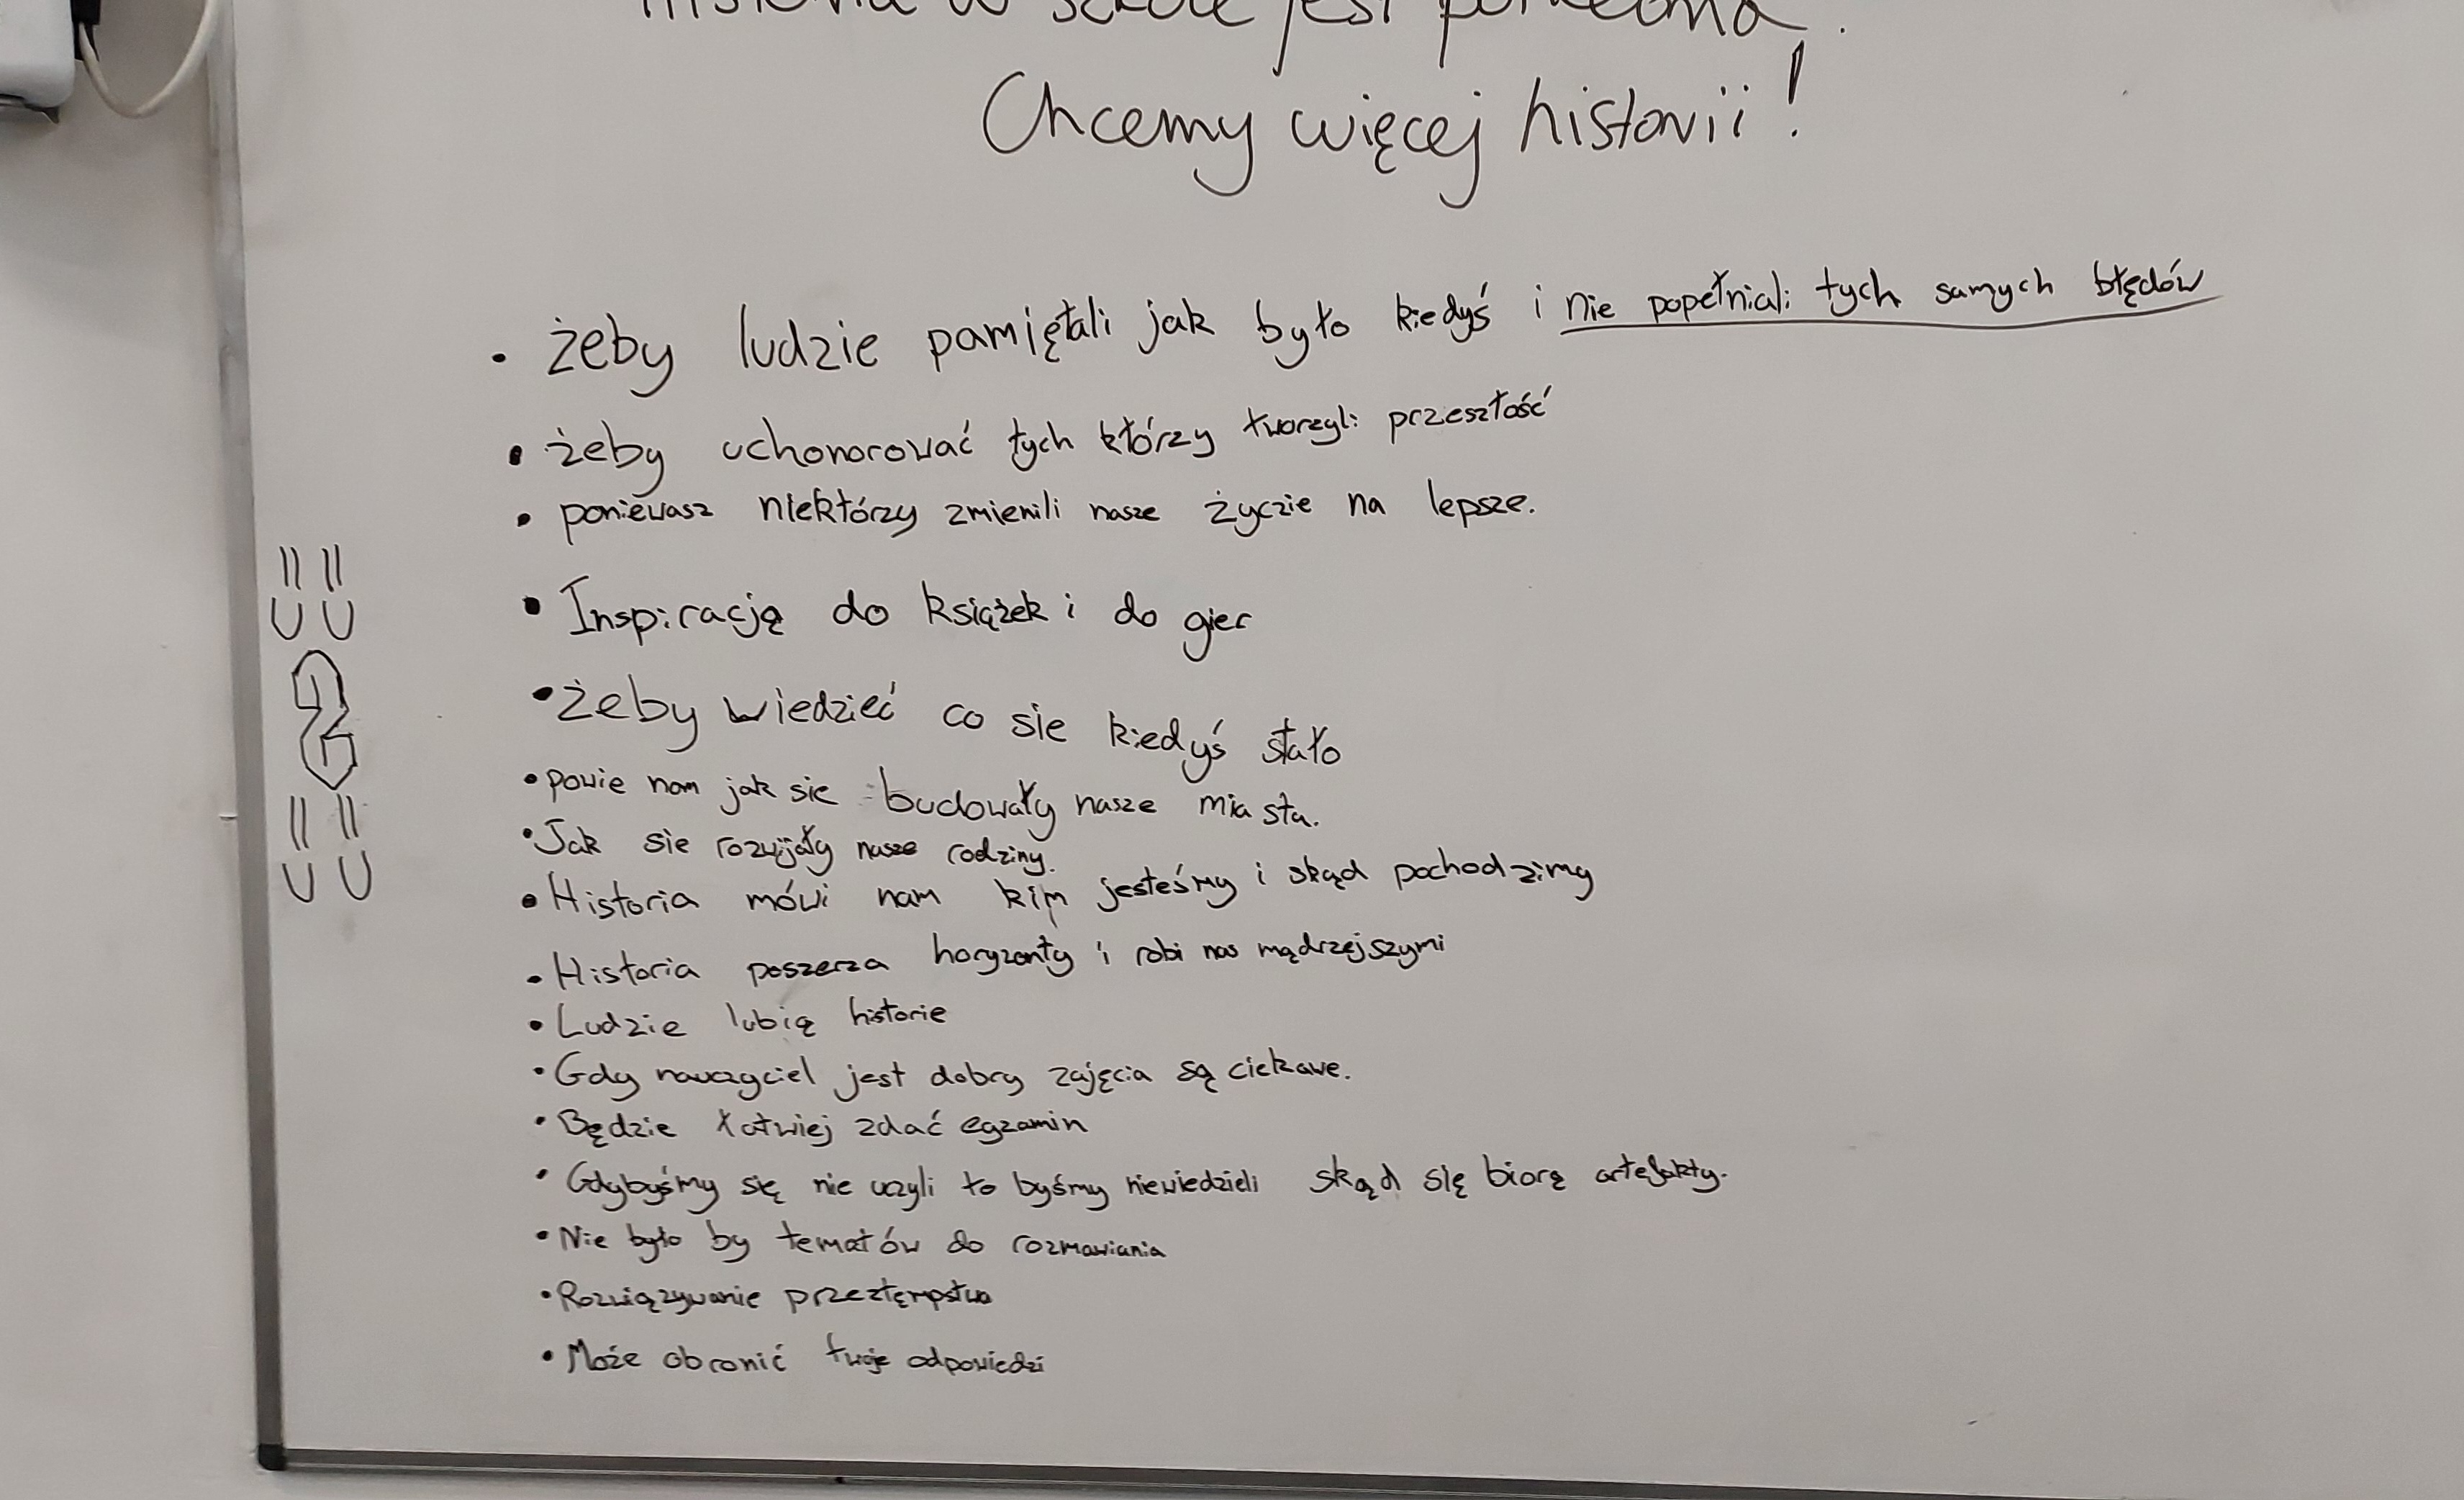 Historia w szkole jest potrzebna.
Chcemy więcej historii!
• żeby ludzie pamiętali jak było kiedyś i nie popełniali tych samych błędów
• żeby uchonorować tych którzy tworzyli przeszłość
• poniewasz niektórzy zmienili nasze życzie na lepsze.
• Inspirację do książek i do gier
• żeby wiedzieć co sie kiedyś stało
• powie nam jak sie budowały nasze miasta.
• Jak sie rozwijały nasze rodziny.
• Historia mówi nam kim jesteśmy i skąd pochodzimy
• Historia poszerza horyzonty i robi nas mądrzejszymi
• Ludzie lubią historie
• Gdy nauczyciel jest dobry zajęcia są ciekawe.
• Będzie łatwiej zdać egzamin
• Gdybyśmy się nie uczyli to byśmy niewiedzieli skąd się biorą artefakty.
• Nie było by tematów do rozmawiania
• Rozwiązywanie
• Może obronić twoje odpowiedzi